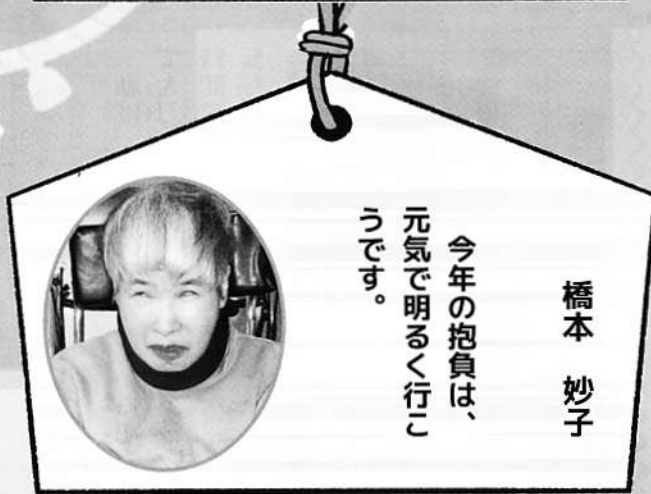 橋本　妙子
今年の抱負は、
元気で明るく行こ
うです。